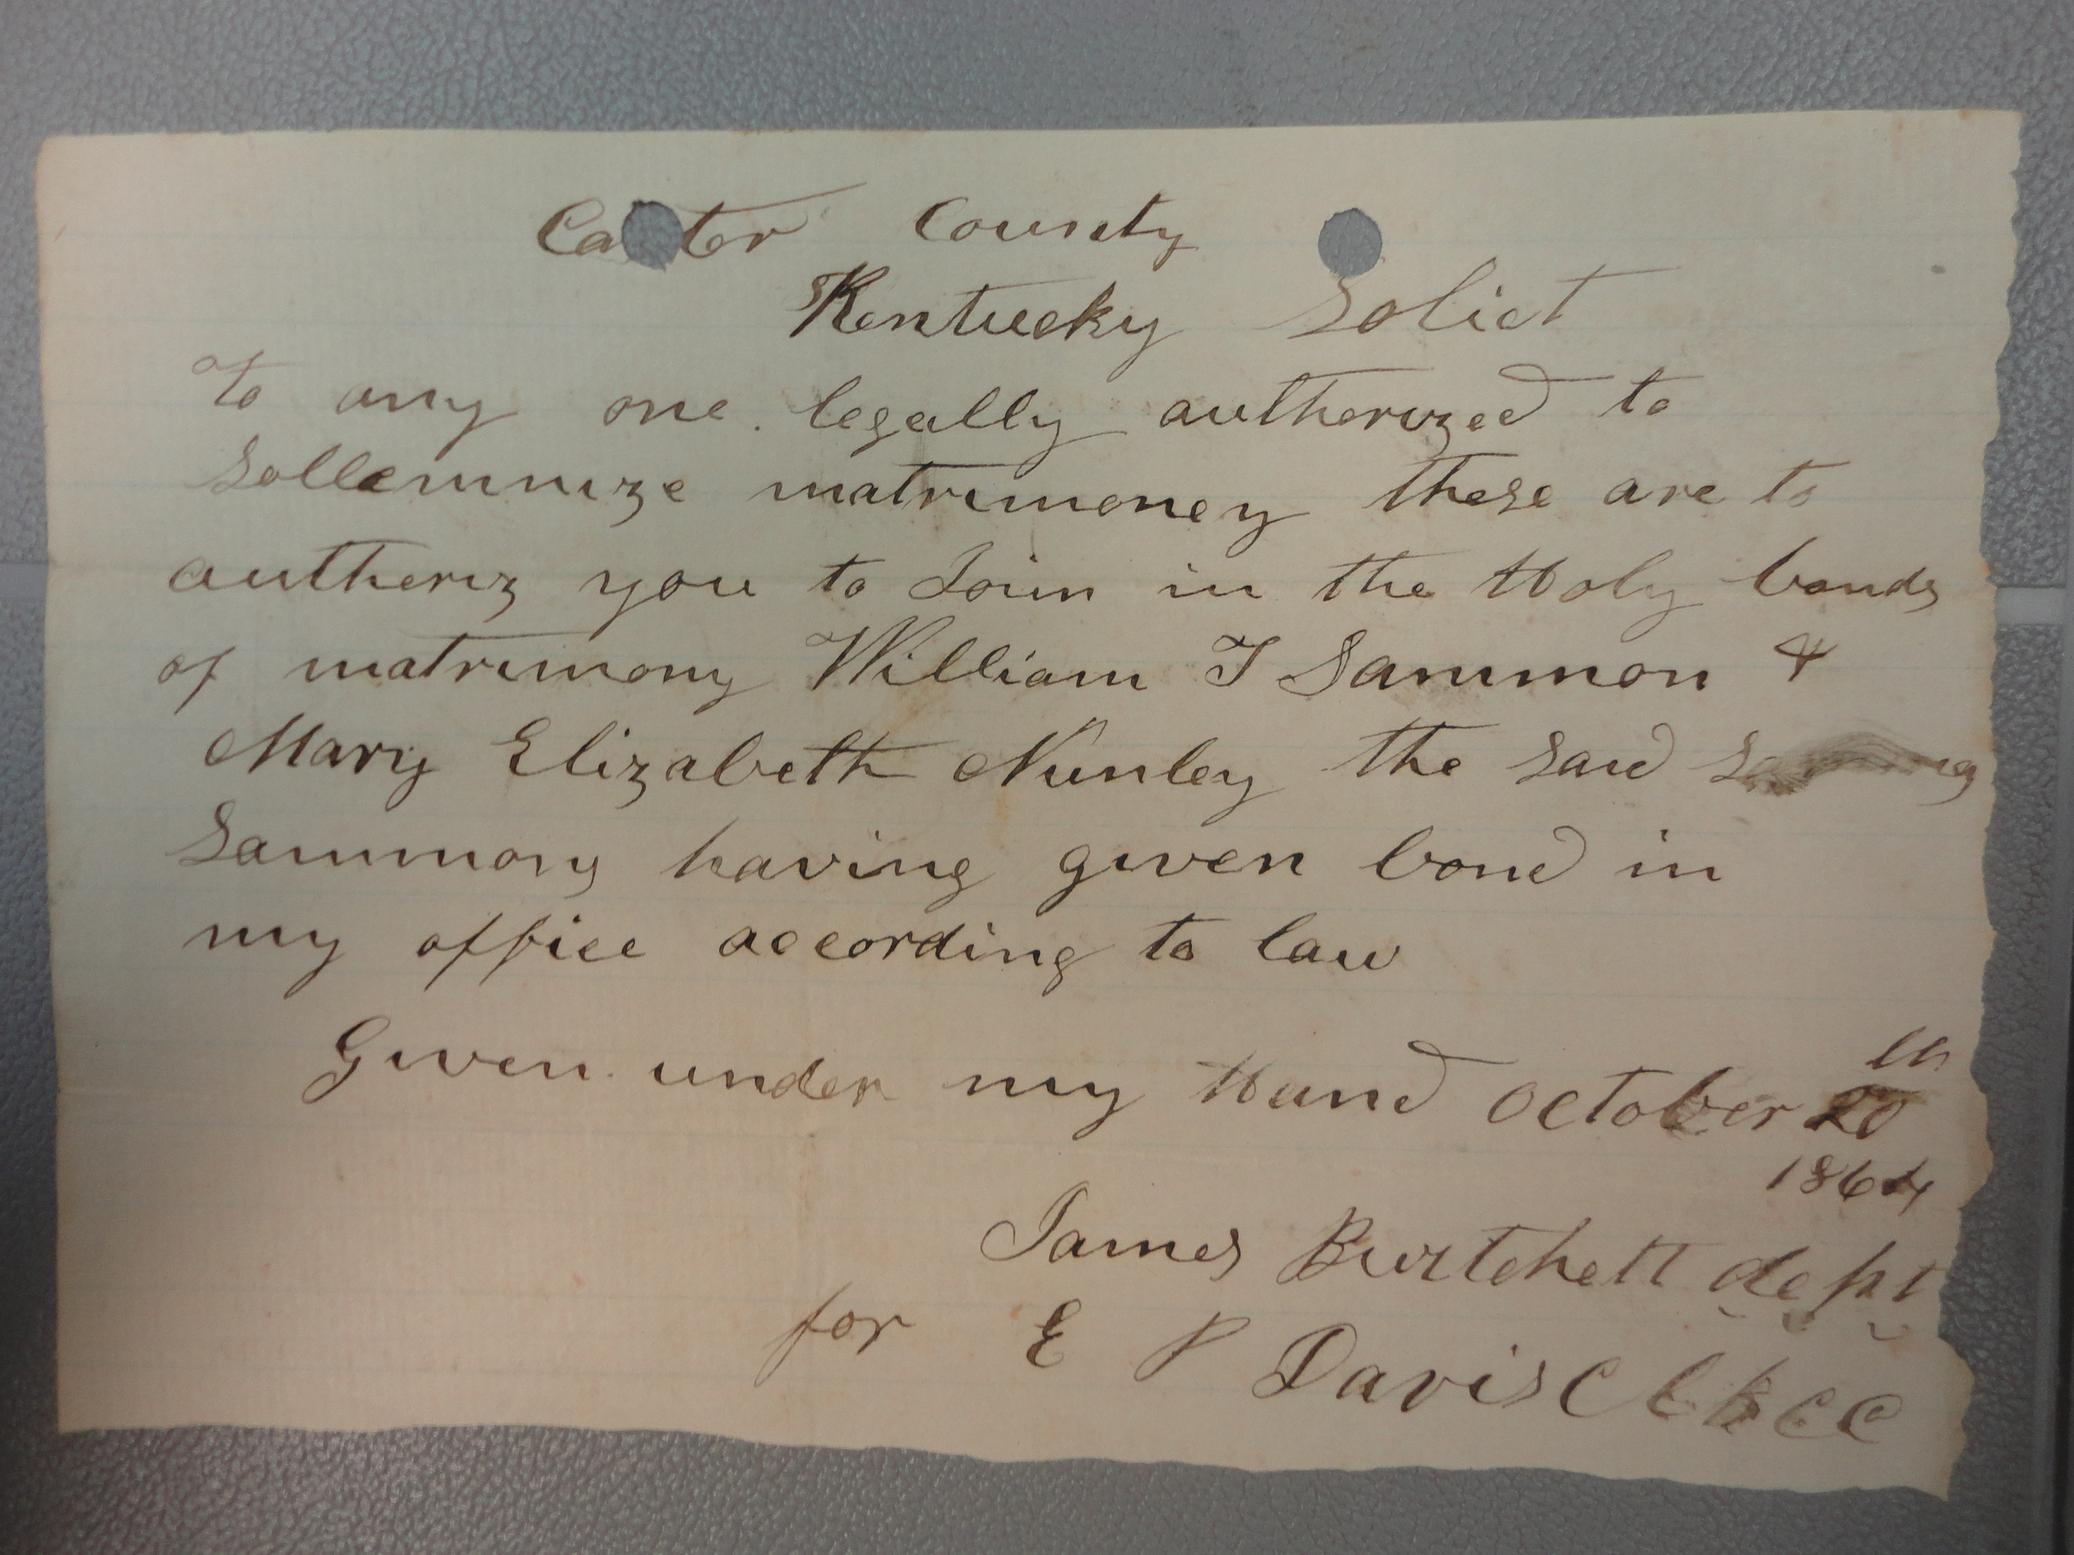 Carter County
Kentucky Solict
To any one legally authorized to
Sollemnize matrimoney these are to
autheriz you to Join in the Holy bonds
of matrimony William T Sammon &
Mary Elizabeth Nunley the Said
Sammons having given bond in
my office according to law
Given under my Hand October 20th
1864
James Burtchett dept
for E P Davis Clk CC